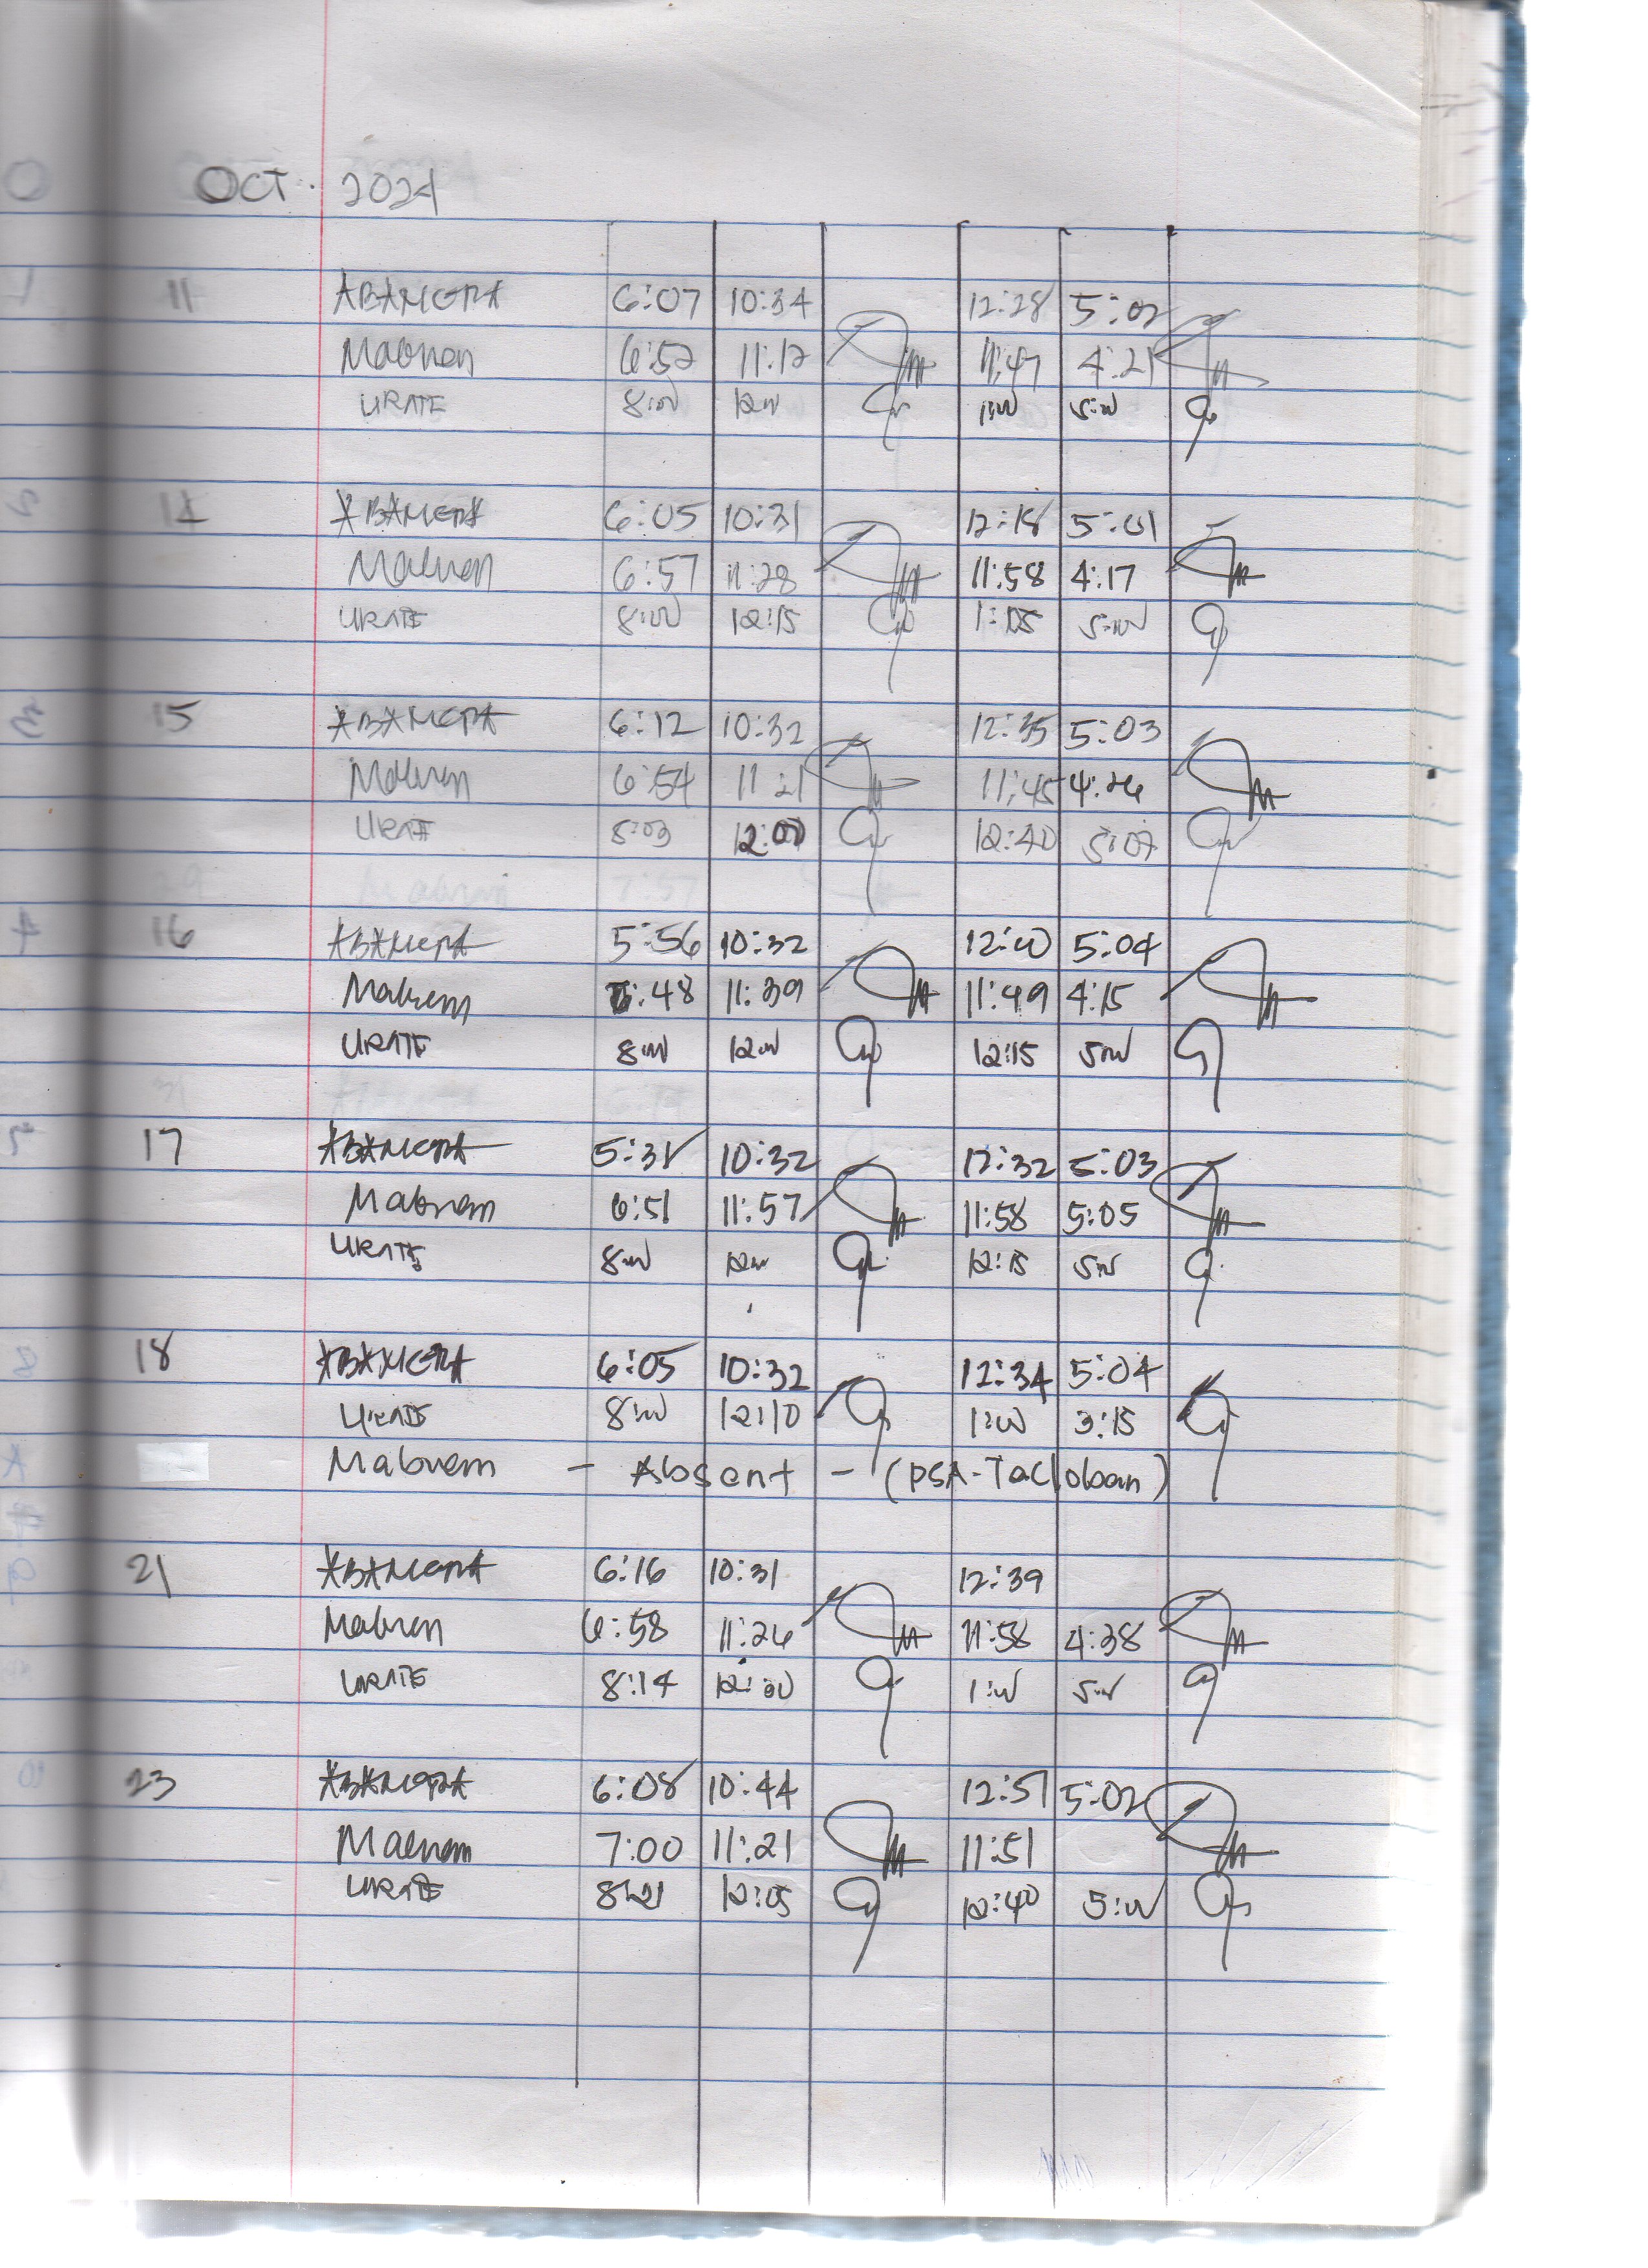 OCT. 2024
11 ABAMCPA 6:07 10:34 12:28 5:02
Mabnem 6:52 11:12 11:47 4:21
URATE 8:00 12:00 1:00 5:00
14 ABAMCPA 6:05 10:31 12:18 5:01
Mabnem 6:57 11:28 11:58 4:17
URATE 8:00 12:15 1:05 5:00
15 ABAMCPA 6:12 10:32 12:35 5:03
Mabnem 6:54 11:21 11:45 4:26
URATE 8:03 12:00 12:40 5:07
16 ABAMCPA 5:56 10:32 12:10 5:04
Mabnem 6:48 11:39 11:49 4:15
URATE 8:00 12:00 12:15 5:00
17 ABAMCPA 5:31 10:32 12:32 5:03
Mabnem 6:51 11:57 11:58 5:05
URATE 8:00 12:00 12:15 5:00
18 ABAMCPA 6:05 10:32 12:34 5:04
URATE 8:00 12:10 1:00 3:15
Mabnem - Absent - (PSA-Tacloban)
21 ABAMCPA 6:16 10:31 12:39
Mabnem 6:58 11:26 11:58 4:38
URATE 8:14 12:00 1:00 5:00
23 ABAMCPA 6:08 10:44 12:51 5:02
Mabnem 7:00 11:21 11:51
URATE 8:21 12:05 12:40 5:00